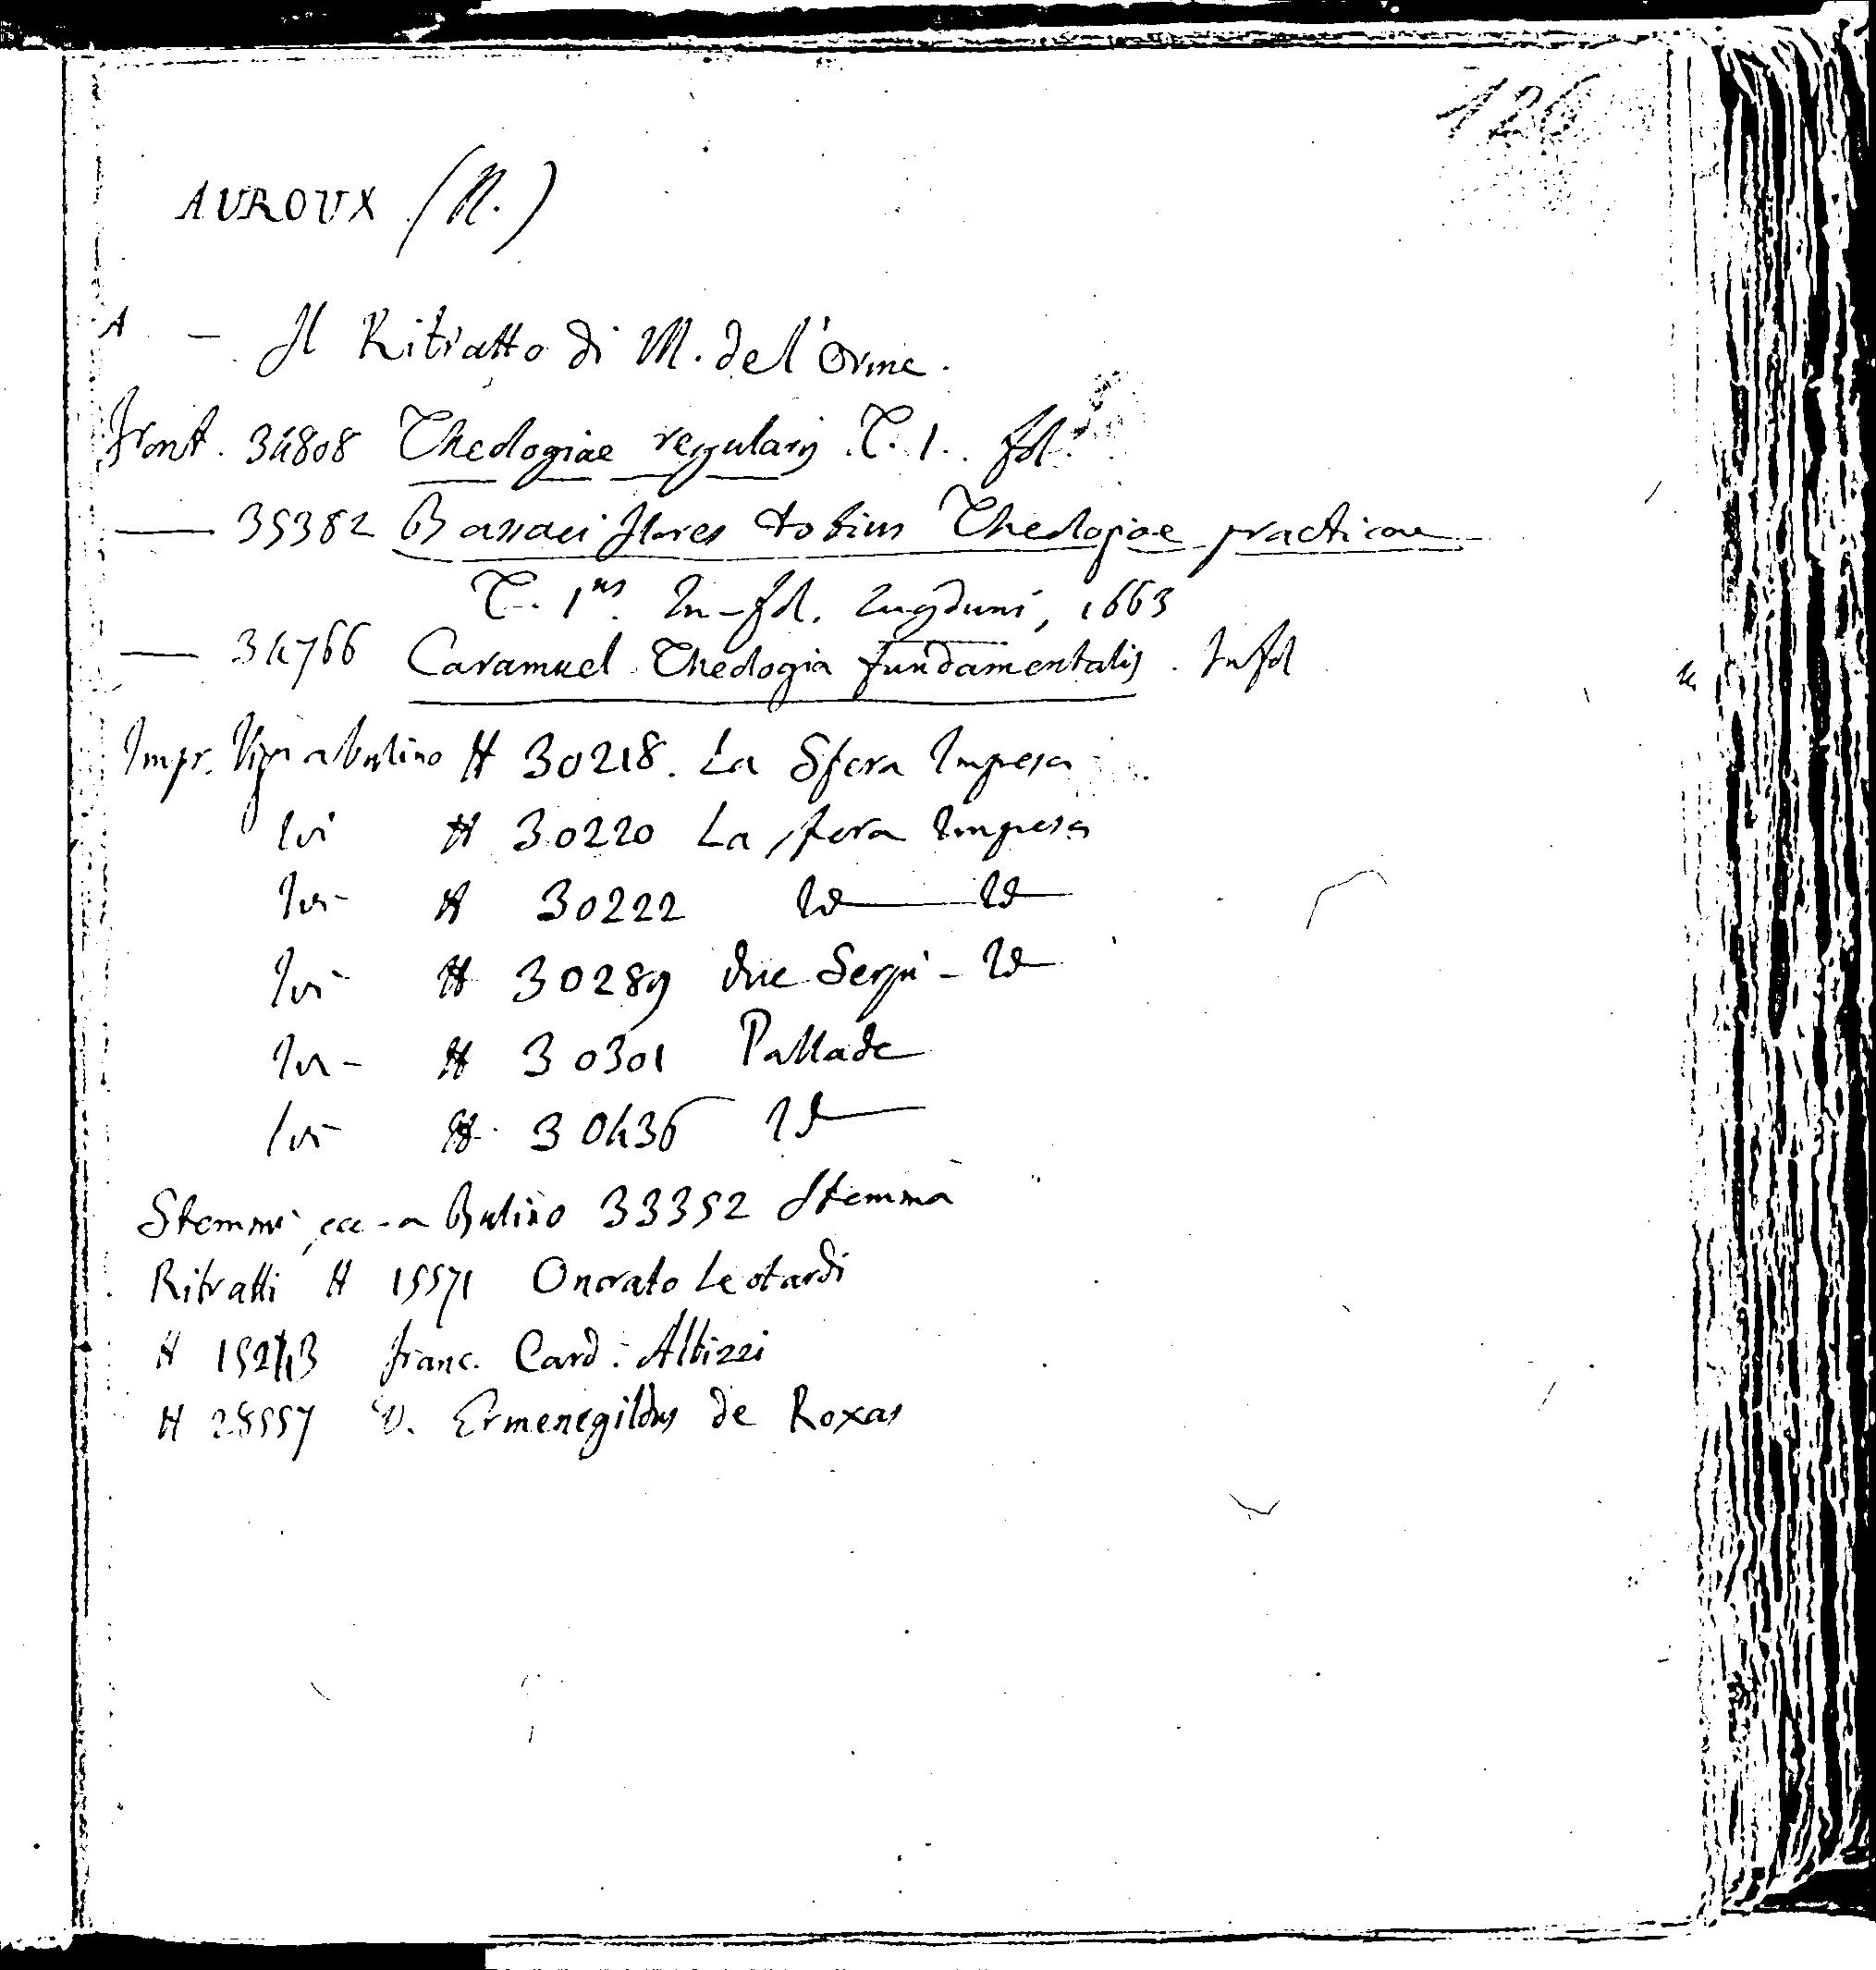 126
AUROUX (N.)
A — Il Ritratto di M. de l'Orme.
Front. 34808 Theologiae regularis T. 1. fol.
— 35382 Bassaei flores totius Theologiae practicae
T. 1us. In-fol. Lugduni, 1663
— 34766 Caramuel Theologia fundamentalis. In fol
Impr. a bulino H 30218. La Sfera Impresa
Ivi H 30220 La sfera Impresa
Ivi - H 30222 Id — Id
Ivi - H 30289 due Serpi - Id
Ivi - H 30301 Pallade
Ivi - H 30436 Id
Stemmi, ecc - a Bulino 33352 Stemma
Ritratti H 15571 Onorato Leotardi
H 15243 Franc. Card. Albizzi
H 28557 D. Ermenegildus de Roxas